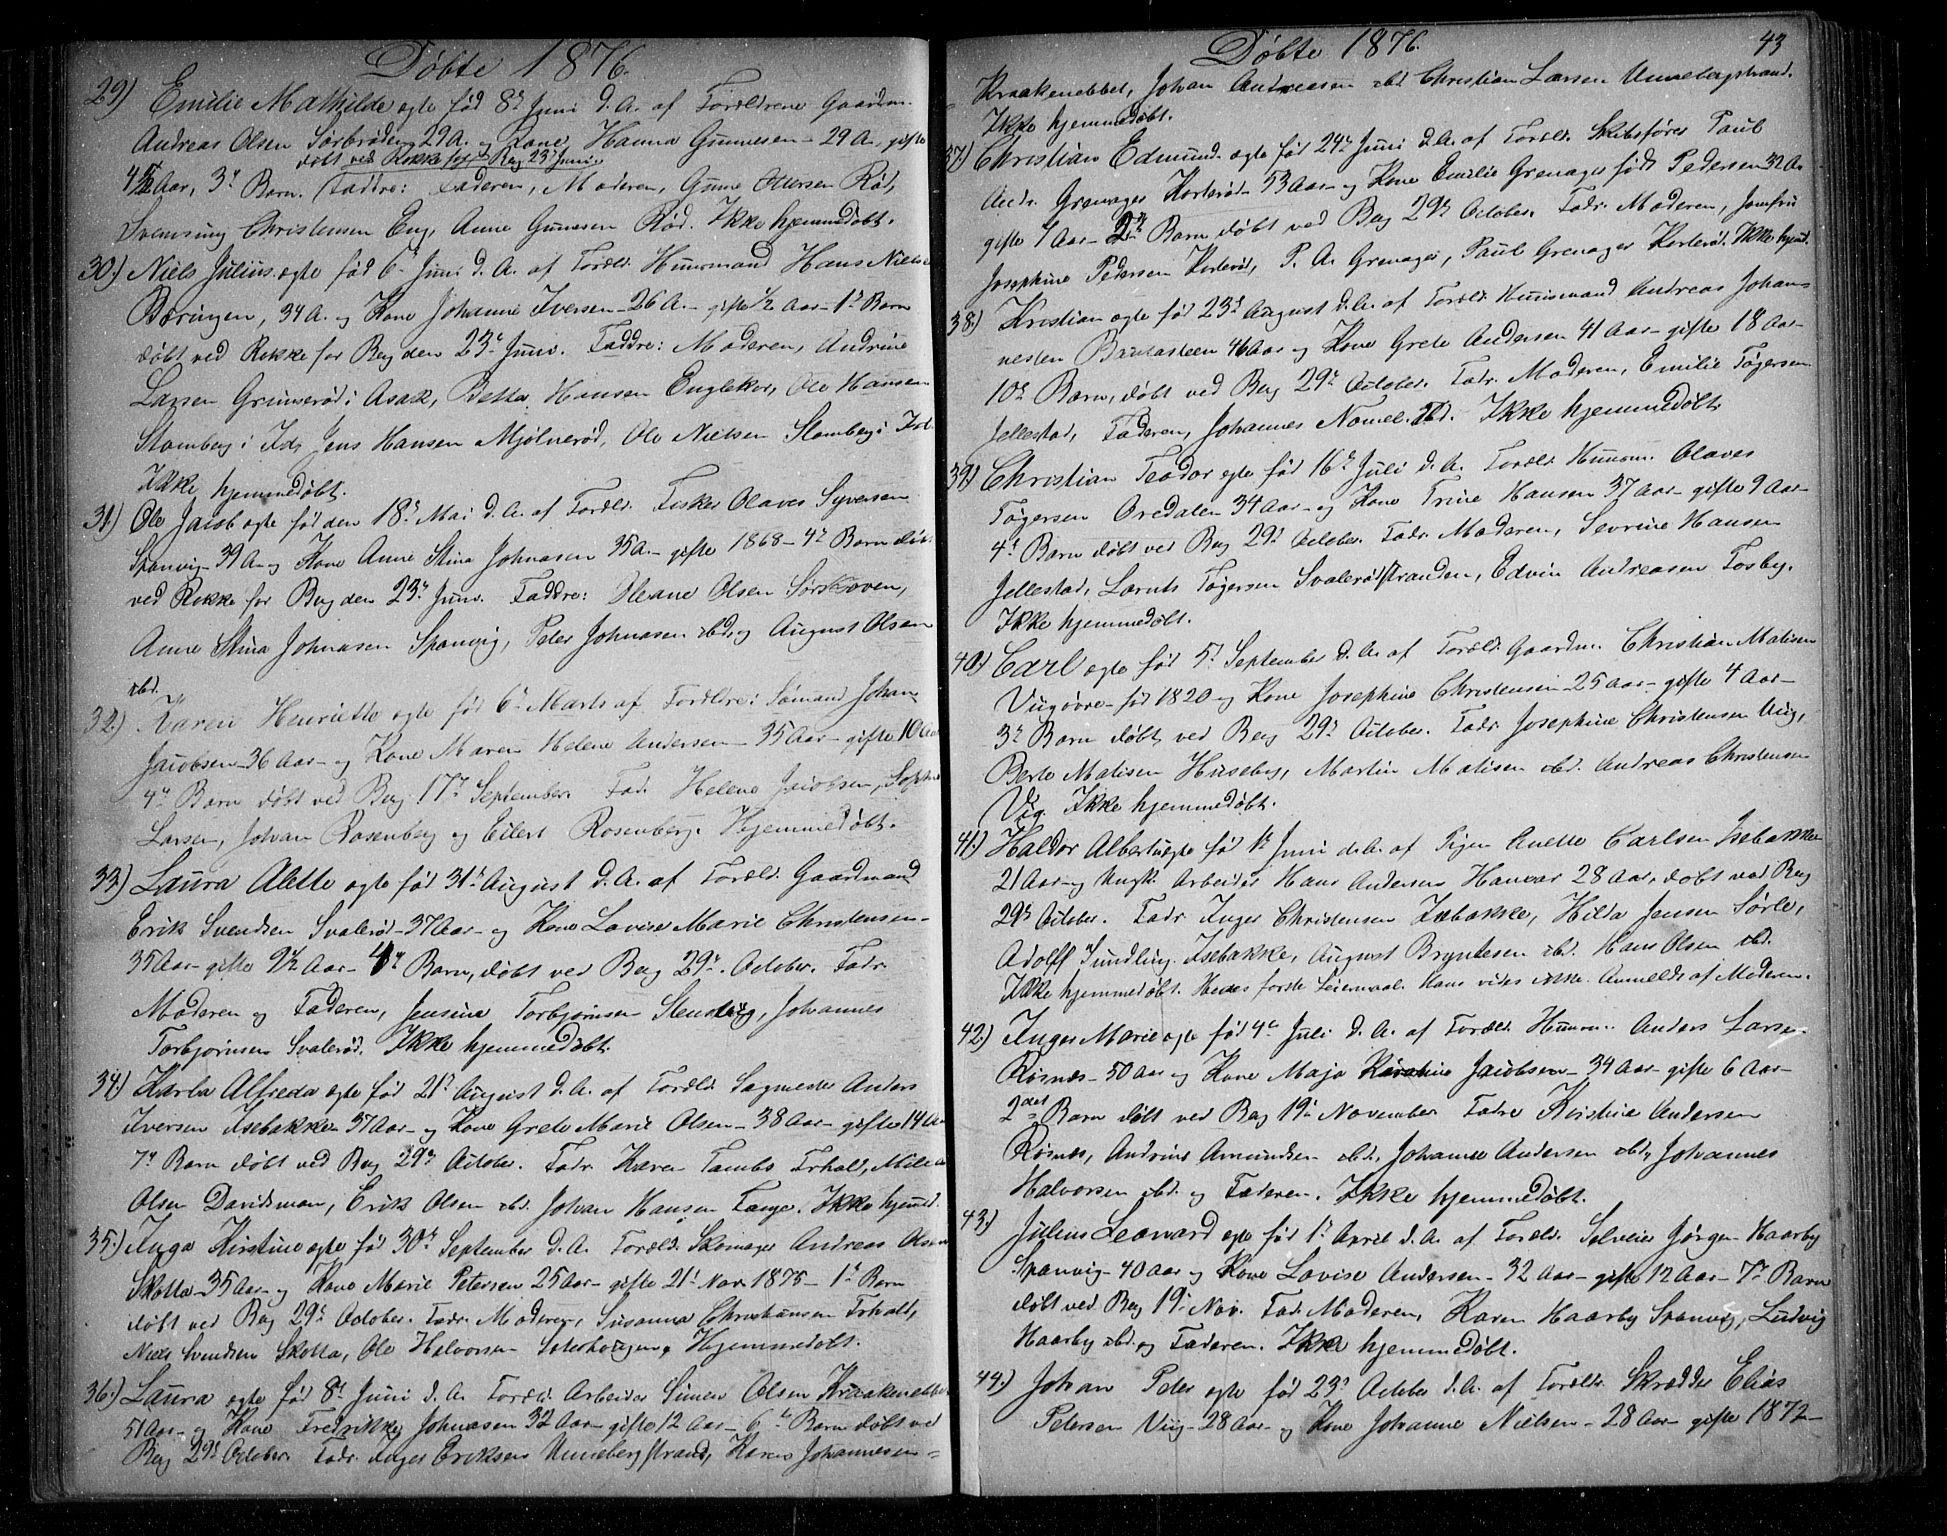 Döbte 1876.
29) Emilie Mathilde egte fød 8de Juni d. A. af Forældrene Gaardm.
Andreas Olsen Sørbrøden 29 A. og Kone Hanna Gunnesen – 29 A., gifte
døbt ved Rokke for Berg 23de Juni.
4½ Aar, 3de Barn. Faddre: Faderen, Moderen, Gunne Ottersen Rød,
Svensing Christensen Eng, Anne Gunnesen Rød. Ikke hjemmedøbt.
30.) Niels Julius egte fød 6te Juni d. A. af Foreldr. Huusmand Hans Nielsen
Boringen, 34 A. og Kone Johanne Iversen – 26 A. – gifte ½ Aar – 1ste Barn
døbt ved Rokke for Berg den 23de Juni. Faddre: Moderen, Andrine
Larsen Grimsrød i Asak, Betha Hansen Englekor, Ole Hansen
Stomberg i Id, Jens Hansen Mjølnerød, Ole Nielsen Stomberg i Id.
Ikke hjemmedøbt.
31.) Ole Jacob egte fød den 18de Mai d. A. af Foreldr. Fisker Olaves Syversen
Sponvig – 39 A. og Kone Anne Stina Johnasen 35 A. – gifte 1868 – 4de Barn døbt
ved Rokke for Berg den 23de Juni. Faddre: Oleane Olsen Sørskoven,
Anne Stina Johnasen Sponvig, Peter Johnasen ibd. og August Olsen
ibd.
32.) Karen Henriette egte fød 6te Marts af Forældre: Sømand Johan
Jacobsen – 36 Aar – og Kone Maren Helene Andersen – 35 Aar – gifte 10 Aar
4de Barn døbt ved Berg 17de September. Fad. Helene Jacobsen, Sophie
Larsen, Johan Rosenberg og Eilert Rosenberg. Hjemmedøbt.
33.) Laura Alette egte fød 31te August d. A. af Foreldr. Gaardmand
Erik Svendsen Svalerød – 37 Aar – og Kone Lovise Marie Christensen –
35 Aar – gifte 9½ Aar – 4de Barn, døbt ved Berg 29de October. Fadr.
Moderen og Faderen, Jensine Torbjørnsen Stensvig, Johannes
Torbjørnsen Svalerød. Ikke hjemmedøbt.
34.) Karla Alfreda egte fød 21de August d. A. af Foreldr. Sagmester Anders
Iversen Isebakke 37 Aar – og Kone Grete Marie Olsen – 38 Aar – gifte 14 A
7de Barn døbt ved Berg 29de October. Fadr. Karen Tambs Frholt, Milla
Olsen Davidsman, Erik Olsen ibd. Johan Hansen Tange. Ikke hjemd.
35.) Inga Kirstine egte fød 30te September d. A. Foreldr. Skomager Andreas Olsen
Skotta – 35 Aar – og Kone Marie Petersen 25 Aar – gifte 21de Nov. 1875 – 1ste Barn
døbt ved Berg 29de October. Fadr. Moderen, Susanna Christiansen Frholt,
Niels Svendsen Skotta, Ole Halvorsen Solerhougen, Hjemmedøbt.
36.) Laura egte fød 8de Juni d. A. Foreldr. Arbeider Simen Olsen Kraakenebbet
51 Aar – og Kone Fredrikke Johnasen 32 Aar – gifte 12 Aar – 6te Barn døbt ved
Berg 29de October. Fadr. Inger Eriksen Unnebergstrand, Karen Johannesen =
Döbte 1876. 43
= Kraakenebbet, Johan Andreasen ibd. Christian Larsen Unnebergstrand.
Ikke hjemmedøbt.
37.) Christian Edmund egte fød 24de Juni d. A. af Foreldr. Skibsfører Paul
Andr. Grenager Korterød – 53 Aar – og Kone Emilie Grenager født Pedersen 32 A.
gifte 9 Aar – 2det Barn døbt ved Berg 29de October. Fadr. Moderen, Jomfru
Josephine Pedersen Korterød, P. A. Grenager, Paul Grenager Korterød. Ikke hjemd.
38.) Kristian egte fød 23de August d. A. af Foreldr. Huusmand Andreas Johan-
nesen Brataasteen 46 Aar og Kone Grete Andersen 41 Aar – gifte 18 Aar –
10de Barn, døbt ved Berg 29de October. Fadr. Moderen, Emilie Tøgersen
Jellestad, Faderen, Johannes Nomel ibd. Ikke hjemmedøbt.
39.) Christian Teodor egte fød 16de Juli d. A. Foreldr. Huusm. Olaves
Tøgersen Oredalen 34 Aar – og Kone Trine Hansen 37 Aar – gifte 9 Aar –
4de Barn døbt ved Berg 29de October. Fadr. Moderen, Sevrine Hansen
Jellestad, Lornts Tøgersen Svalerødstranden, Edvin Andreasen Tosby.
Ikke hjemmedøbt.
40.) Carl egte fød 5te September d. A. af Foreldr. Gaardm. Christian Matisen
Viig øvre – fød 1820 – og Kone Josephine Christensen – 25 Aar – gifte 4 Aar –
3de Barn døbt ved Berg 29de October. Fadr. Josephine Christensen Viig,
Berte Matisen Huseby, Martin Matisen ibd. Andreas Christensen
Viig. Ikke hjemmedøbt.
41.) Haldor Albert uegte fød 1ste Juni d. A. af Pigen Anette Carlsen Isebakke
21 Aar – og Ungk. Arbeider Hans Andersen Hanevar 28 Aar, døbt ved Berg
29de October. Fadr. Inger Christensen Isebakke, Hilda Jensen Sørle,
Adolf Sundling Isebakke, August Bryntesen ibd. Hans Olsen ibd.
Ikke hjemmedøbt. Hendes første Leiermaal. Hans vides ikke. Anmeldt af Moderen.
42.) Inger Marie egte fød 4de Juli d. A. af Foreldr. Huusm. Anders Larsen
Røsnæs – 50 Aar og Kone Maja Karoline Jacobsen – 34 Aar – gifte 6 Aar –
2det Barn døbt ved Berg 19de November Fadre Kristine Andersen
Røsnæs, Andrine Amundsen ibd. Johanne Andersen ibd., Johannes
Halvorsen ibd. og Faderen. Ikke hjemmedøbt.
43.) Julius Leonard egte fød 1ste April d. A. af Foreldr. Selveier Jørgen Haarby
Sponvig – 40 Aar og Kone Lovise Andersen – 32 Aar – gifte 12 Aar – 7de Barn
døbt ved Berg 19de Nov. Fadr. Moderen, Karen Haarby Sponvig, Ludvig
Haarby ibd. og Faderen. Ikke hjemmedøbt.
44.) Johan Peter egte fød 23de October d. A. af Foreldr. Skrædder Elias
Petersen Viig – 28 Aar – og Kone Johanne Nielsen – 28 Aar – gifte 1872 –